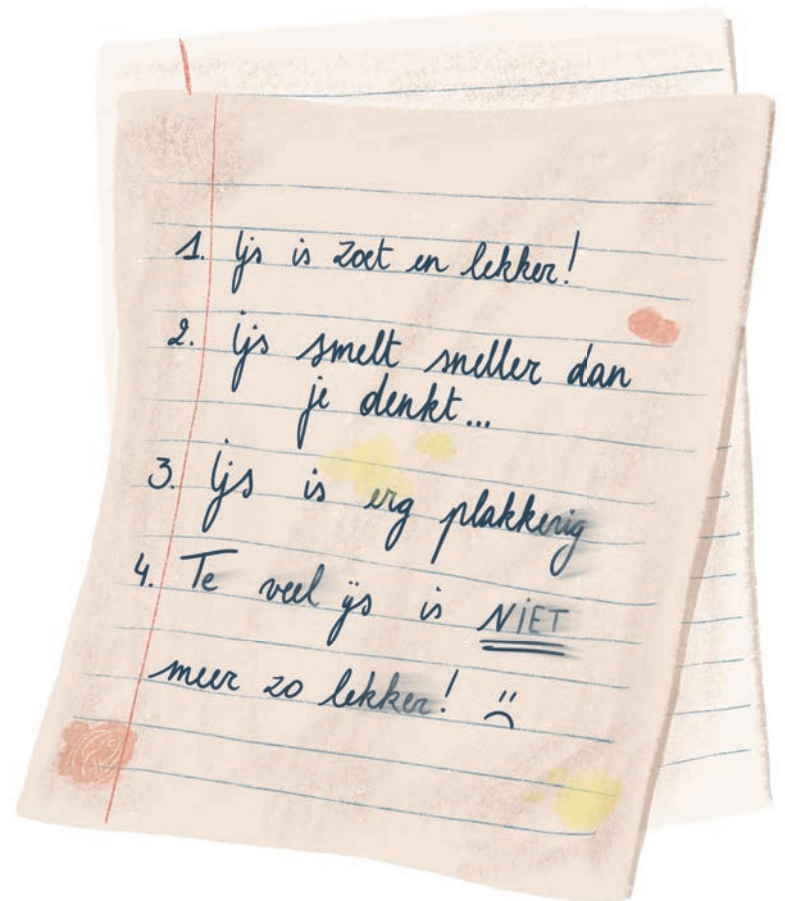 1. Ijs is zoet en lekker!
2. Ijs smelt sneller dan
je denkt...
3. Ijs is erg plakkerig
4. Te veel ijs is NIET
meer zo lekker! :(